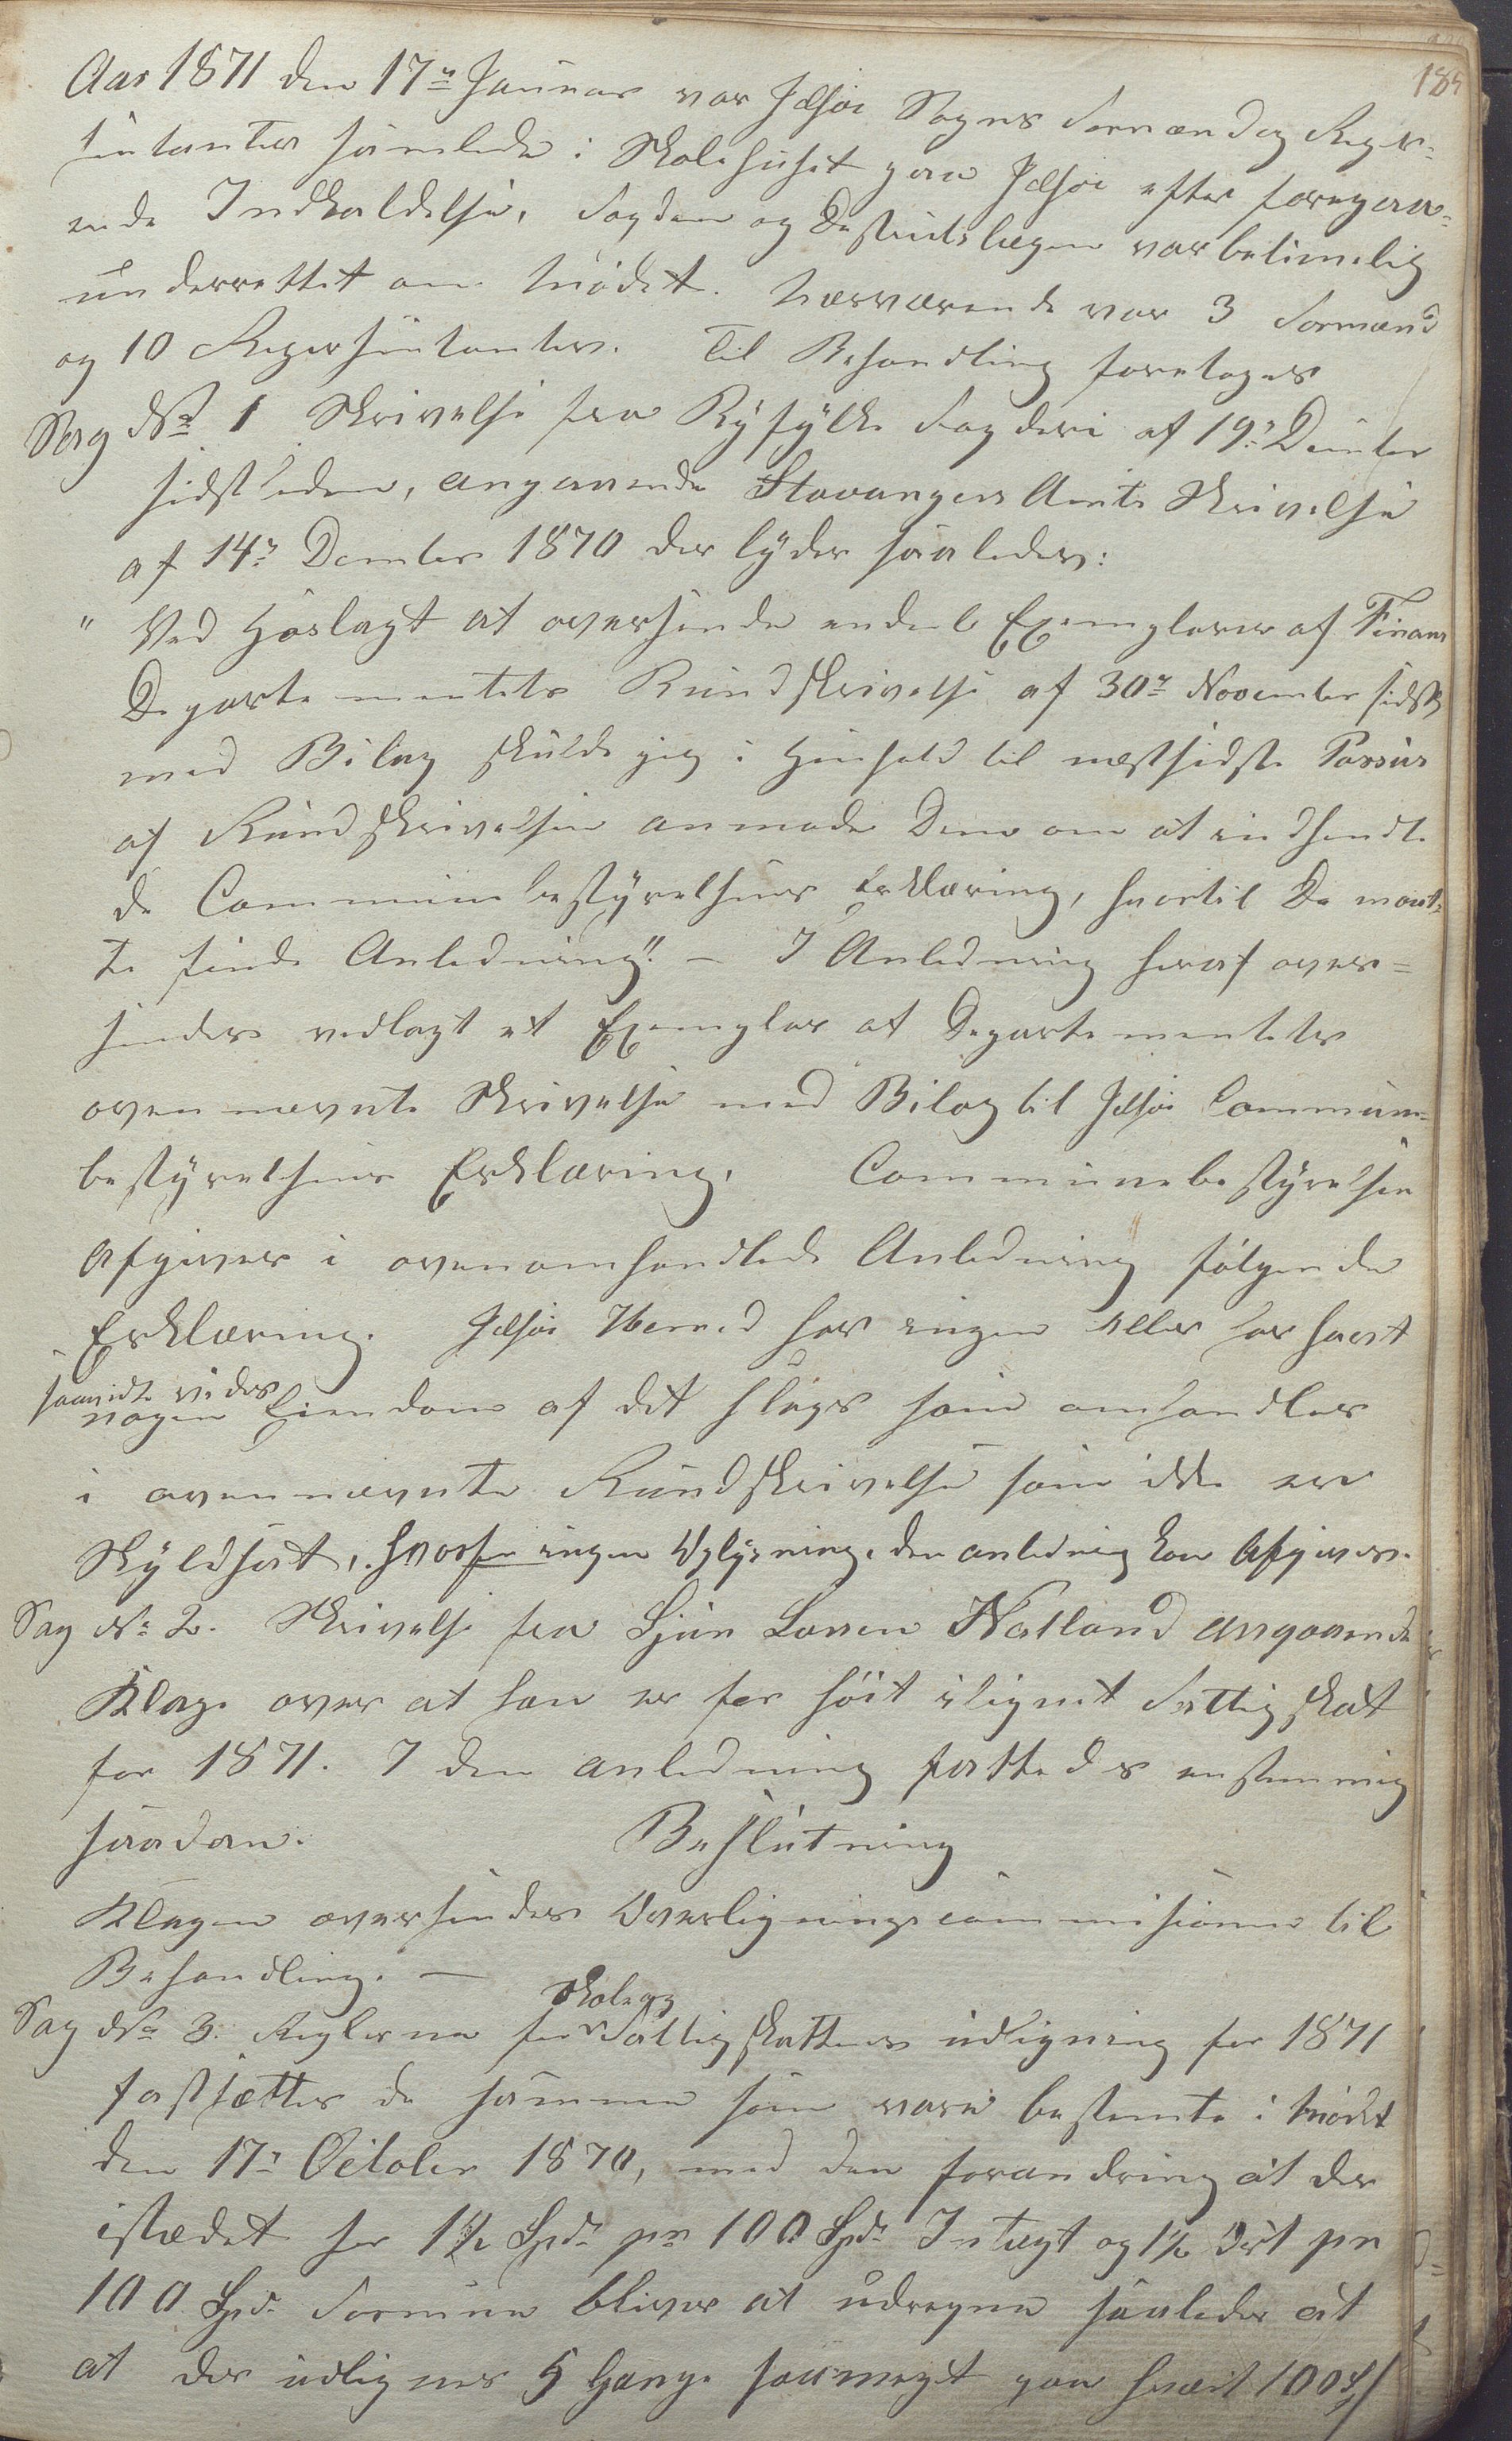 185
Aar 1871 den 17de Januar var Jelsøe Sogns Formænd og Repræ-
sentanter samlede i Skolehuset paa Jelsøe efter foregaa-
ende Indkaldelse, Fogden og Destriktslægen var betimelig
underrettet om Mødet. Nærværende var 3 Formænd
og 10 Repræsentanter. Til Behandling foretoges
Sag No 1 Skrivelse fra Ryfylke Fogderi af 19de Decmber
sidstleden, angaaende Stavanger Amts Skrivelse
af 14de Decmber 1870 der lyder saaledes:
" Ved Hoslagt at oversende endel Exemplarer af Finans
Departementets Rundskrivelse af 30te November sidstl
med Bilag skulde jeg i Henhold til næstsidste Passus
af Rundskrivelsen anmode Dem om at indhendte
de Communebestyrelsers Erklæring, hvortil De maat-
te finde Anledning". — I Anledning heraf over-
sendes vedlagt et Exemplar af Departementets
ovennævnte Skrivelse med Bilag til Jelsøe Commune-
bestyrelses Erklæring. Communebestyrelsen
Afgiver i ovenomhandlede Anledning følgende
Erklæring. Jelsøe Herred har ingen eller har havt
saavidt vides
nogen Eiendom af det slags som omhandles
i ovennævnte Rundskrivelse som ikke er
Skyldsat, hvorfor ingen Oplysning i den anledning kan Afgives.
Sag No 2. Skrivelse fra Gjør Larsen Natland angaaende
Klage over at han er for høit ilignet Fattigskat
for 1871. I den anledning fattedes enstemmig
saadan. Beslutning
Klagen oversendes Overligningscommisionen til
Behandling. —
Skole og
Sag No 3. Reglerne for Fattigskattens udligning for 1871
fastsættes de samme som vare bestemte i Mødet
den 17de October 1870, med den forandring at der
istædet for 1½ Spd. pr 100 Spd. Intægt og 1½ Ort pr
100 Spd. Formue bliver at udregne saaledes at
at der udlignes 5 Gange saameget paa hvert 100 S